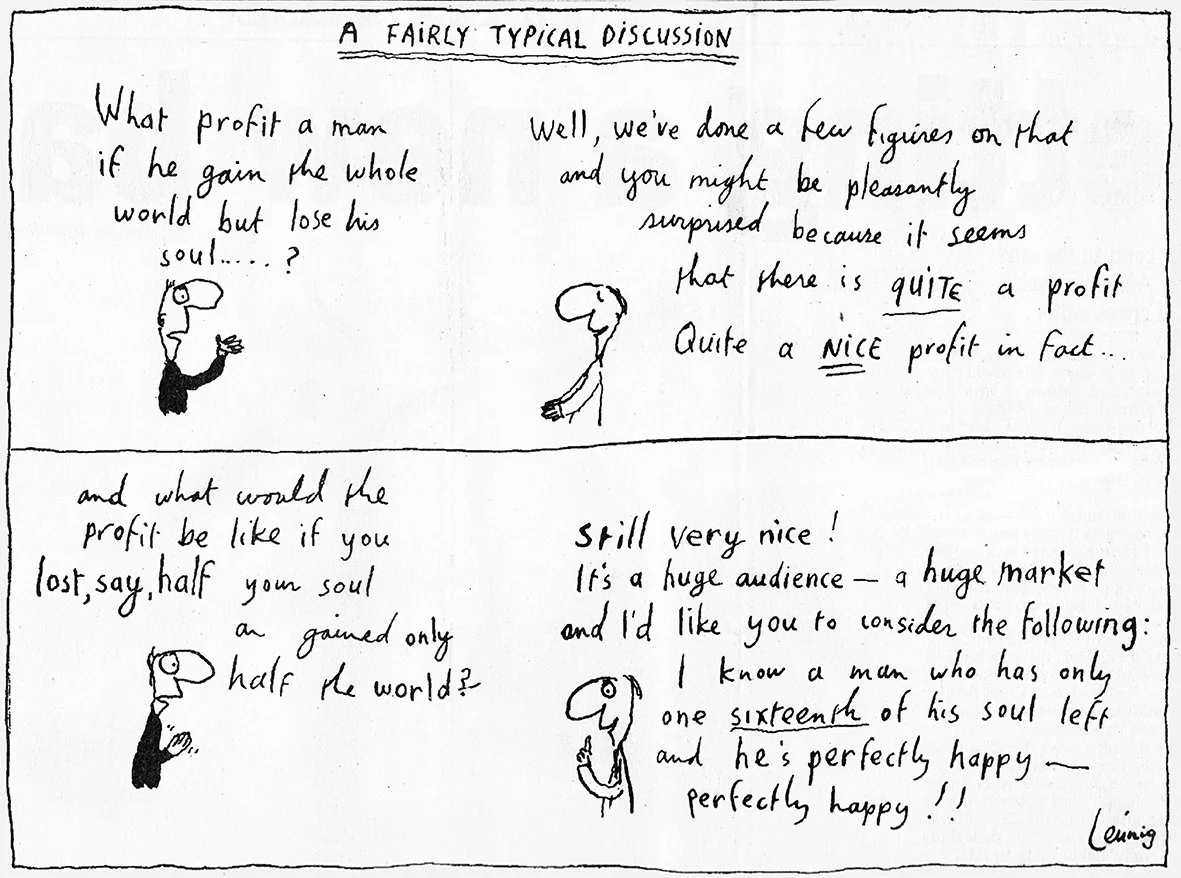 A FAIRLY TYPICAL DISCUSSION
What profit a man
if he gain the whole
world but lose his
soul.....?
Well, we've done a few figures on that
and you might be pleasantly
surprised because it seems
that there is QUITE a profit
Quite a NICE profit in fact...
and what would the
profit be like if you
lost, say, half your soul
an gained only
half the world?
Still very nice!
It's a huge audience — a huge market
and I'd like you to consider the following:
I know a man who has only
one sixteenth of his soul left
and he's perfectly happy —
perfectly happy!!
Leunig